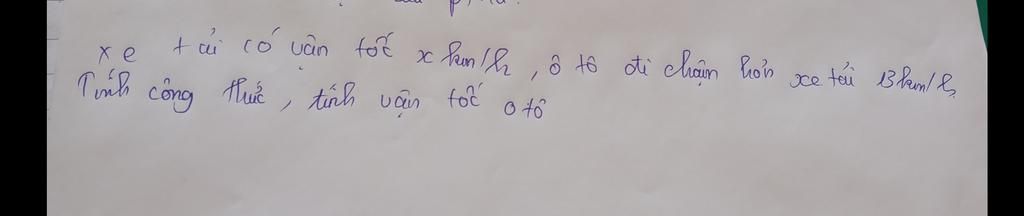 xe tải có vận tốc x km/h, ô tô đi chậm hơn xe tải 13 km/h,
Tính công thức, tính vận tốc ô tô